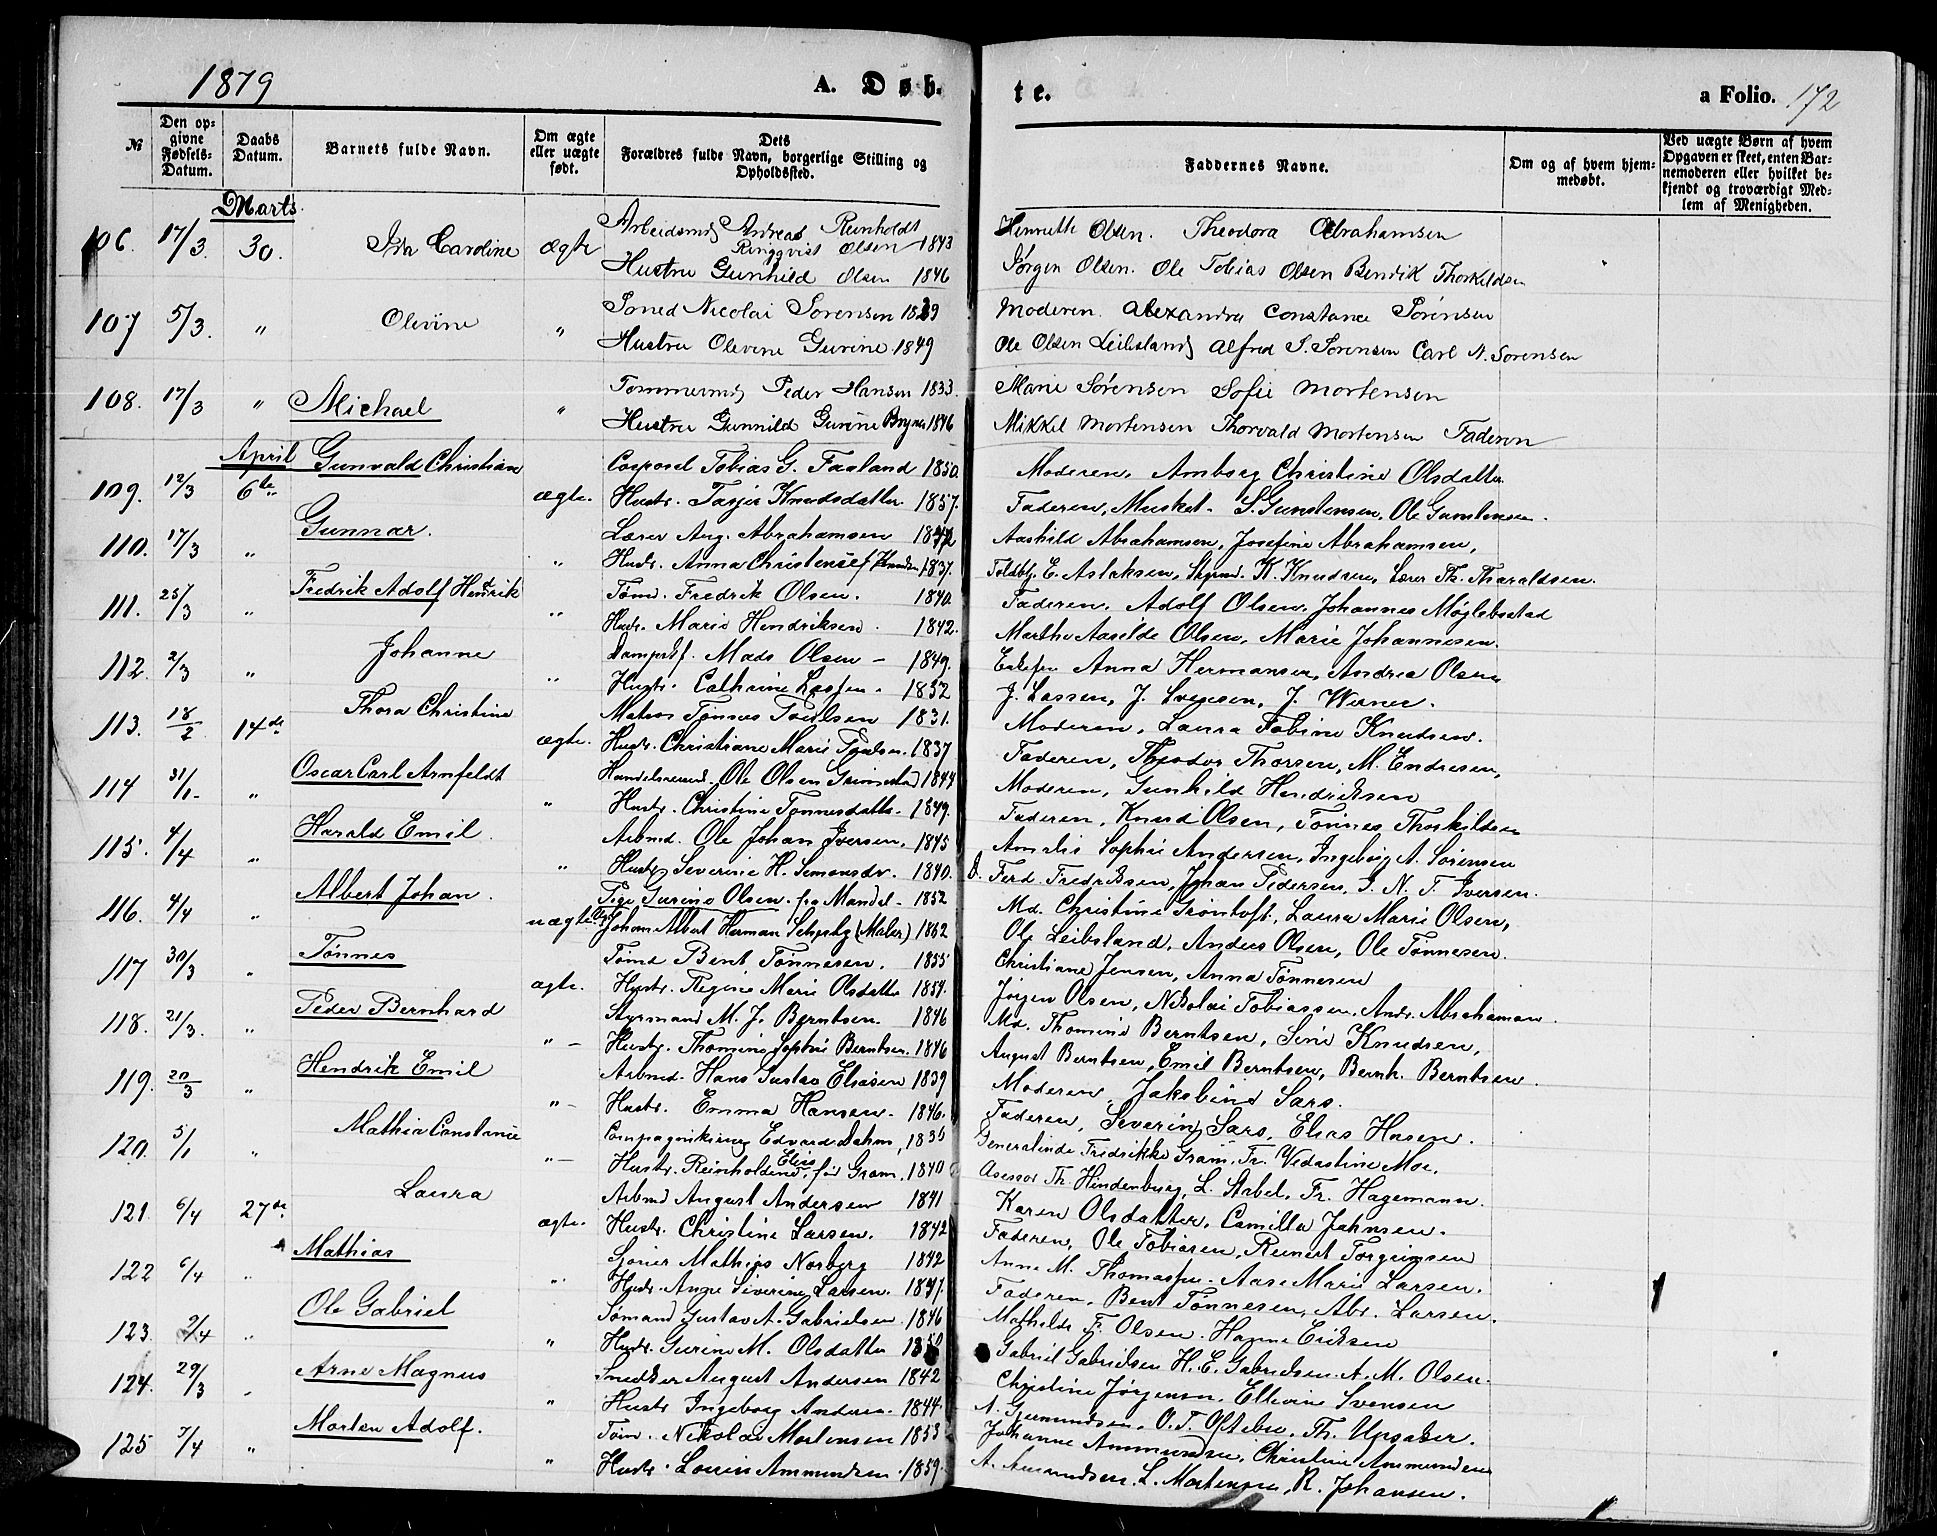 1879
A. Døb-
te.
a Folio. 172
№
Den op-
givne
Fødsels-
Datum.
Daabs
Datum.
Barnets fulde Navn.
Om ægte
eller uægte
født.
Dets
Forældres fulde Navn, borgerlige Stilling og
Opholdssted.
Faddernes Navne.
Om og af hvem hjem-
medøbt.
Ved uægte Børn af hvem
Opgaven er skeet, enten Bar-
nemoderen eller hvilket be-
kjendt og troværdigt Med-
lem af Menigheden.
Marts.
106. 17/3. 30. Ida Caroline ægte Arbeidsmd Andreas Reinholdt Henriette Olsen. Theodora Abrahamsen
Ringqvist Olsen 1843
Hustru Gunhild Olsen 1846 Jørgen Olsen. Ole Tobias Olsen Bendik Thorkildsen
107 5/3. " Olevine " Nicolai Sørensen Moderen. Alexandra Constance Sørensen
Hustru Olevine Gurine 1849 Ole Olsen Leibsland Alfred S. Sørensen Carl N. Sørensen
108. 17/3 " Michael " Tømmermd Peder Hansen 1833. Marie Sørensen Sofie Mortensen
Hustru Gunnild Gurine 1846 Mikkel Mortensen Thorvald Mortensen Faderen
April
109. 12/3 6te Gunvald Christian ægte. Corporel Tobias G. Faaland 1850. Moderen, Amborg Christine Olsdatter
Hustr. Tarjer Knudsdatter 1857. Faderen, Musket. S. Gunstensen, Ole Gunstensen.
110. 17/3 " Gunnar. " Lærer Aug. Abrahamsen Aashild Abrahamsen, Josefine Abrahamsen,
Hustr. Anna Christense 1837. Toldbtj. E. Aslaksen, Styrmd. K. Knudsen, Lærer Th. Tharaldsen.
111. 25/3 " Fredrik Adolf Hendrik " Tømd. Fredrik Olsen. 1840. Faderen. Adolf Olsen, Johannes Møglebostad
Hustr. Marie Hendriksen. 1842. Marthe Aasilde Olsen, Marie Johannesen.
112. 2/3 " Johanne " Dampskf. Mads Olsen - 1849. Enkefru Anna Hermansen, Andrea Olsen
Hustr. Cathrine Lassen. 1852 J. Lassen, J. Svensen, J. Werner.
113. 18/2 14de Thora Christine ægte. Matros Tønnes 1831. Moderen, Laura Fobine Knudsen.
Hustr. Christiane Marie 1837 Faderen, Theodor Thorsen, M. Endresen,
114 31/1- " Oscar Carl Arnfeldt " Handelsreisend. Ole Olsen 1844 Moderen, Gunhild Hendriksen
Hustr. Christine Tønnesdatter. 1849. Faderen, Knud Olsen, Tønnes Thorkildsen
115. 4/4 " Harald Emil. " Arbmd. Ole Johan Iversen, 1845 Amalie Sophie Andersen, Ingeborg A. Sørensen
Hustr. Severine H. Simonsdr. 1840. Ferd Fredriksen, Johan Pedersen, I. N. T. Iversen.
116. 4/4 " Albert Johan. uægte Pige Gurine Olsen. fra Mandal - 1852 Md. Christine Grøntoft, Laura Marie Olsen,
Johan Albert Herman (Maler) 1862 Ole Leibsland, Anders Olsen, Ole Tønnesen.
117 30/3 " Tønnes ægte. Tømd Bent Tønnesen. 1855 Christiane Jensen, Anna Tønnesen
Hustr. Regine Marie Olsdatter 1854. Jørgen Olsen, Nikolai Tobiassen, Andr. Abrahamsen.
118. 21/3. " Peder Bernhard " - Styrmand M. J. Berntsen. 1846 Md. Thomine Berntsen, Sine Knudsen,
Hustr. Thomine Sophie Berntsen. 1846 August Berntsen, Emil Berntsen, Bernh. Berntsen.
119. 20/3 " Hendrik Emil " - Arbmd. Hans Gustav Eliasen 1839 Moderen, Jakobine Sars.
Hustr. Emma Hansen. 1846. Faderen, Severin Sars, Elias Hansen.
120. 5/1 " Mathia Constance " - Compagnikirurg Edvard Dahm, 1836 Generalinde Fredrikke Gram, Fr. Vedastine Moe.
Hustr. Reinholdine Elise, fød Gram, 1840 Asessor Th. Hindenburg, L. Stabel, Fr. Hagemann.
121. 6/4 27de Laura ægte. Arbmd August Andersen 1841 Karen Olsdatter, Camilla Jahnsen.
Hustr. Christine Larsen. 1842 Faderen, Ole Tobiasen, Reinert Torgrimsen
122 6/4 " Mathias " Gjører Mathias Norberg 1842 Anne M. Thomassen. Aase Marie Larsen.
Hustr. Anne Siverine Larsen. 1847. Faderen. Bent Tønnesen, Abr. Larsen.
123. 2/4 " Ole Gabriel " Sømand Gustav A. Gabrielsen. 1846 Mathilde F. Olsen. Hanne Eriksen
Hustr. Gurine M. Olsdatter 1850 Gabriel Gabrielsen H. E. Gabrielsen. A. M. Olsen.
124. 29/3 " Arne Magnus " Snedker August Andersen 1842 Christine Jørgensen, Ellevine Svensen
Hustr Ingeborg Andersen. 1844. A. Gjermundsen, O. T. Oftebro. Th. Upsaker.
125 3/4 " Morten Adolf. " Tøm. Nikolai Mortensen 1853 Johanne Ammundsen, Christine Ammundsen
Hustr. Lovise Ammundsen. 1859. A. Amundsen. L. Mortensen, R. Johansen.